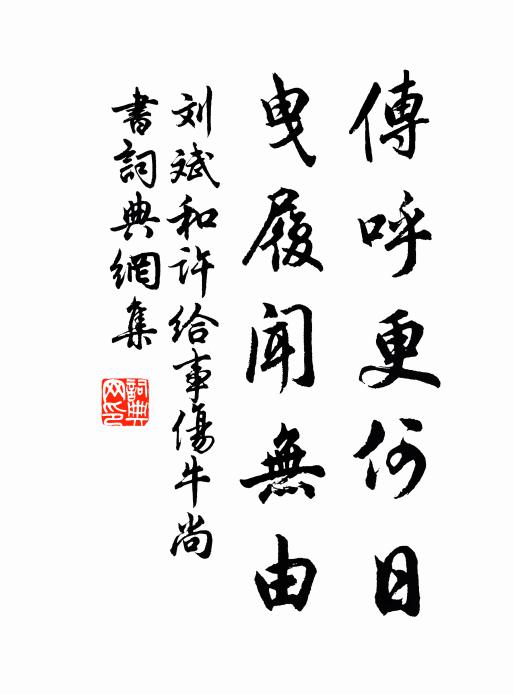 傳呼更何日
曳履聞無由
刘斌和許給事傷牛尚
書詞典網集
詞典
网印